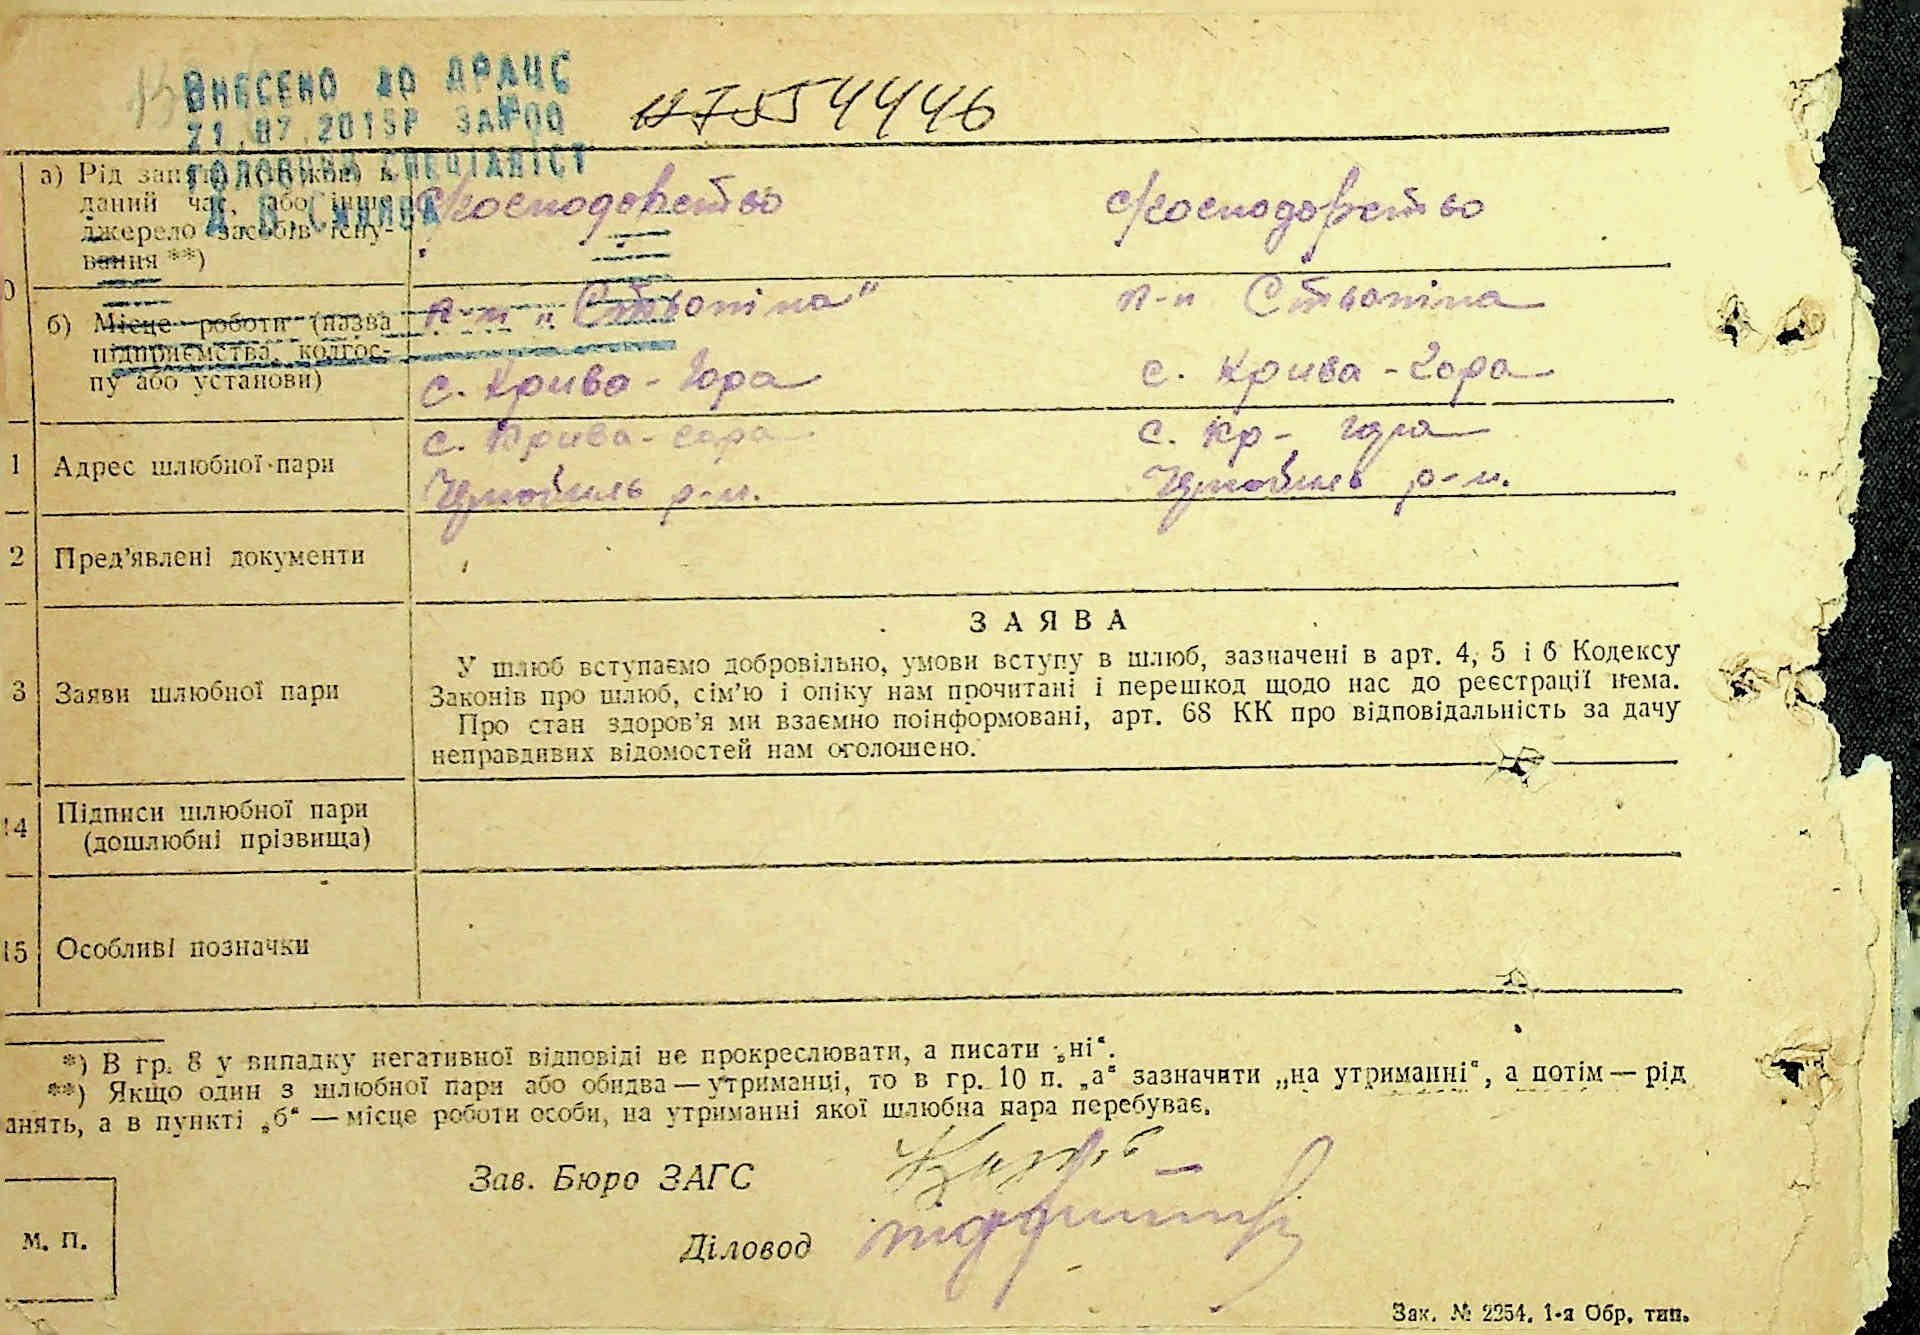 ВНЕСЕНО ДО ДРАЦС
21.07.2015Р
ГОЛОВНИЙ СПЕЦІАЛІСТ
а) Рід занять (служби) в
даний час, або інше
джерело засобів існу-
вання **)
с/господарство с/господарство
б) Місце роботи (назва
підприємства, колгос-
пу або установи)
с. Крива-Гора с. Крива-Гора
1 Адрес шлюбної пари
с. Крива-гора с. Кр-Гора
Чорнобиль р-н. Чорнобиль р-н.
2 Пред’явлені документи
ЗАЯВА
3 Заяви шлюбної пари
У шлюб вступаємо добровільно, умови вступу в шлюб, зазначені в арт. 4, 5 і 6 Кодексу
Законів про шлюб, сім’ю і опіку нам прочитані і перешкод щодо нас до реєстрації нема.
Про стан здоров’я ми взаємно поінформовані, арт. 68 КК про відповідальність за дачу
неправдивих відомостей нам оголошено.
14 Підписи шлюбної пари
(дошлюбні прізвища)
15 Особливі позначки
*) В гр. 8 у випадку негативної відповіді не прокреслювати, а писати „ні“.
**) Якщо один з шлюбної пари або обидва — утриманці, то в гр. 10 п. „а“ зазначити „на утриманні“, а потім — рід
анять, а в пункті „б“ — місце роботи особи, на утриманні якої шлюбна пара перебуває.
Зав. Бюро ЗАГС
Діловод
М. П.
Зак. № 2254. 1-я Обр. тип.